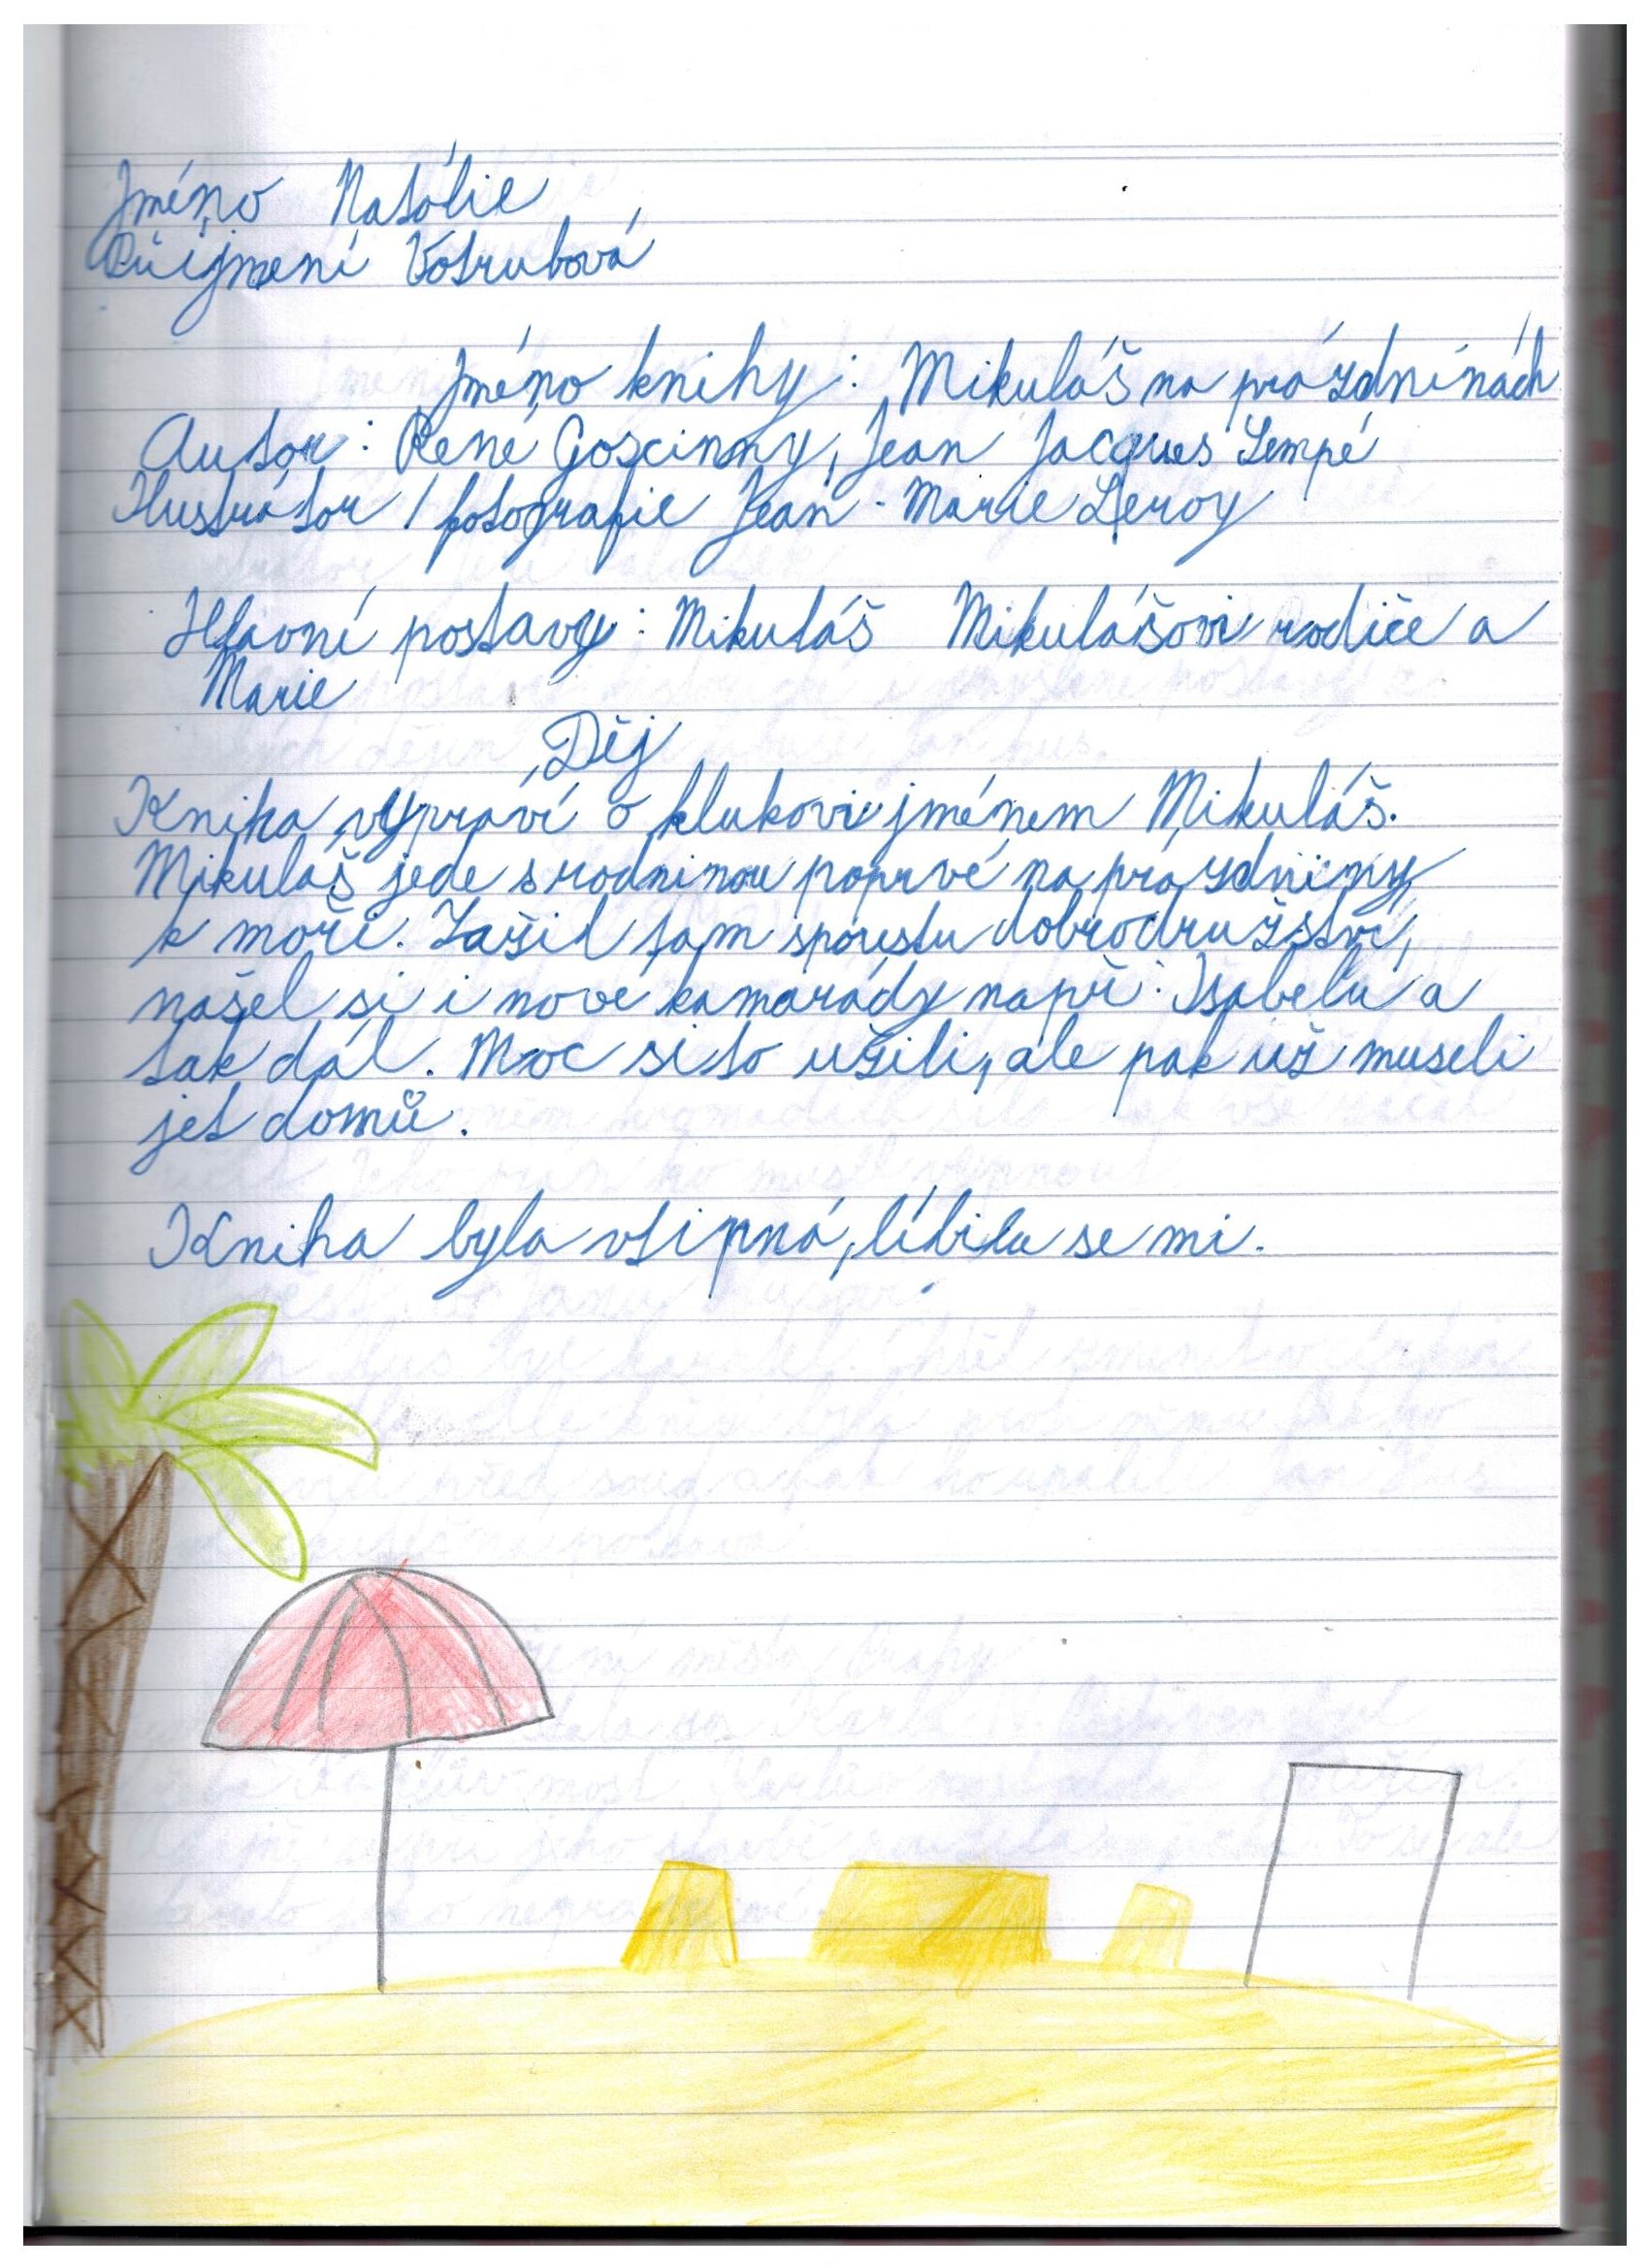 Jméno Natálie
Příjmení Votrubová
Jméno knihy: Mikuláš na prázdninách
Autor: René Goscinny, Jean Jacques Sempé
Ilustrátor / fotografie Jean-Marie Leroy
Hlavní postavy: Mikuláš Mikulášovi rodiče a
Marie
Děj
Kniha vypraví o klukovi jménem Mikuláš.
Mikuláš jede s rodninou poprvé na prázdniny
k moři. Zažil tam spoustu dobrodružství,
našel si i nové kamarády např: Isabelu a
tak dál. Moc si to užili, ale pak už museli
jet domů.
Kniha byla vtipná, líbila se mi.